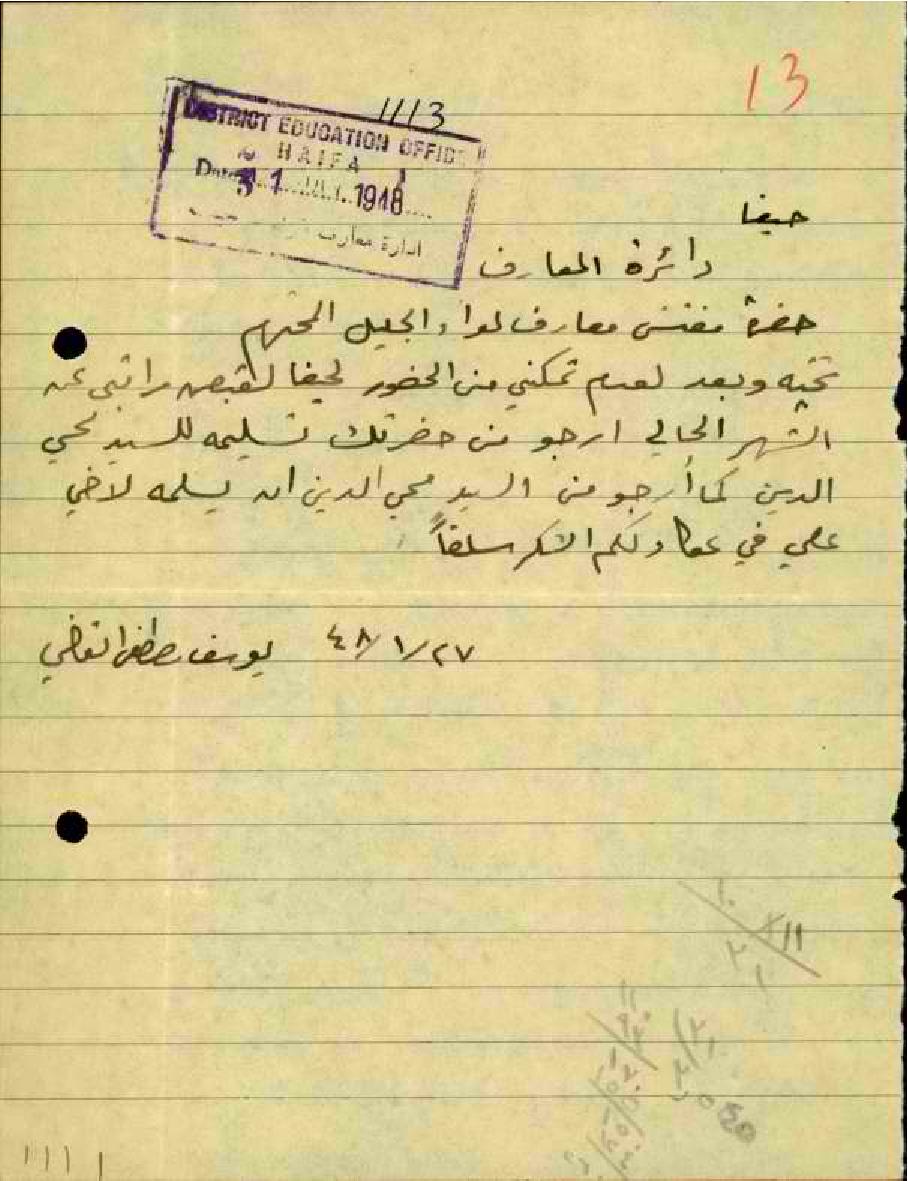 13
1113
DISTRICT EDUCATION OFFICE
HAIFA
Date 31 1948
ادارة معارف
حيفا
دائرة المعارف
حضرة مفتش معارف لواء الجليل المحترم
تحيه وبعد لعدم تمكني من الحضور لحيفا لقبض راتبي عن
الشهر الحالي ارجو من حضرتك تسليمه للسيد محي
الدين كما أرجو من السيد محي الدين ان يسلمه لاخي
علي في عكا ولكم الشكر سلفاً
٢٧/١/٤٨ يوسف مصطفى القاضي